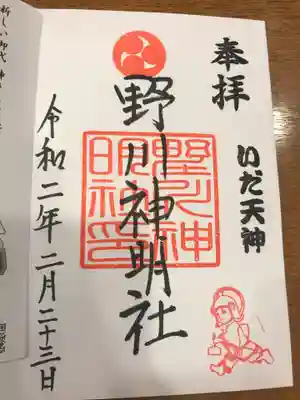 奉拝
いだ天神
野川神明社
野川神明社印
令和二年二月二十三日